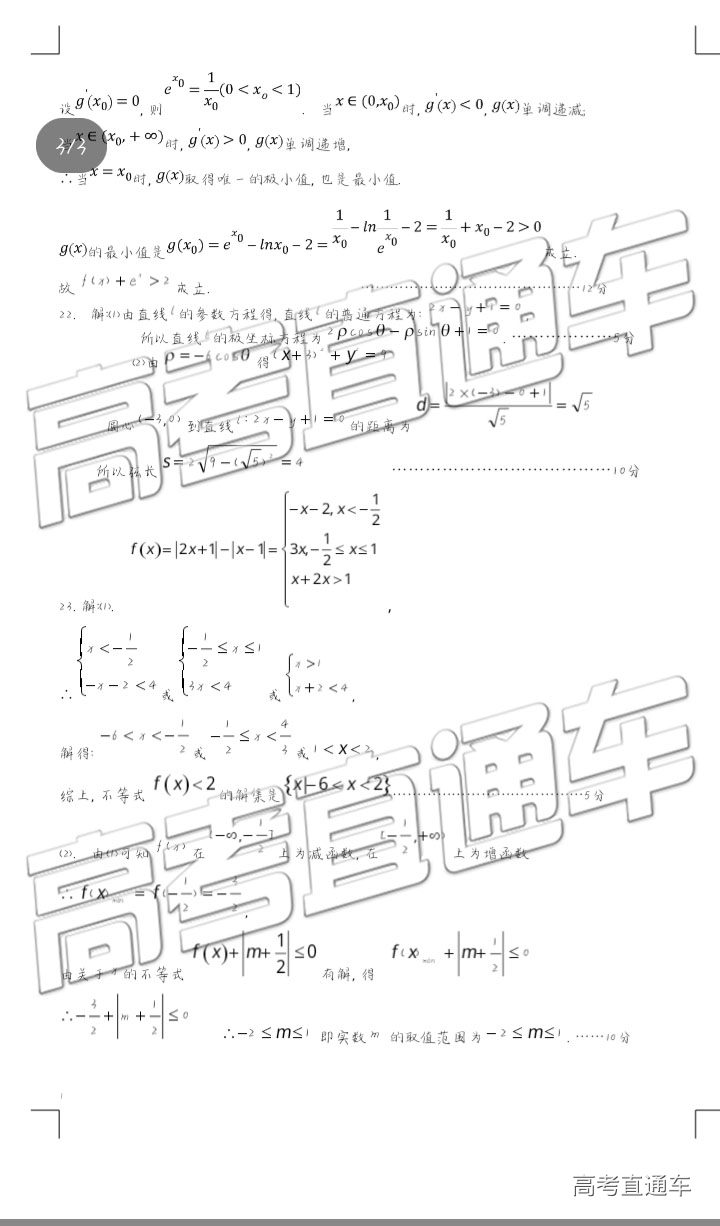 设 g'(x₀) = 0, 则 e^{x₀} = 1/x₀ (0 < xₒ < 1). 当 x ∈ (0,x₀) 时, g'(x) < 0, g(x) 单调递减;
当 x ∈ (x₀, +∞) 时, g'(x) > 0, g(x) 单调递增,
3/3
∴当 x = x₀ 时, g(x) 取得唯一的极小值, 也是最小值.
g(x)的最小值是 g(x₀) = e^{x₀} − lnx₀ − 2 = 1/x₀ − ln 1/e^{x₀} − 2 = 1/x₀ + x₀ − 2 > 0 成立.
故 f(x) + eˣ > 2 成立. ……………………………12分
22. 解:(1)由直线 l 的参数方程得, 直线 l 的普通方程为: 2x − y + 1 = 0
所以直线 l 的极坐标方程为 2ρcosθ − ρsinθ + 1 = 0. ………………5分
(2)由 ρ = −6cosθ 得 (x+3)² + y² = 9
圆心(−3,0) 到直线 l: 2x − y + 1 = 0 的距离为 d = |2×(−3) − 0 + 1|/√5 = √5
所以弦长 s = 2√(9 − (√5)²) = 4 ……………………………10分
23. 解:(1). f(x) = |2x+1| − |x−1| = { −x−2, x<−1/2 ; 3x, −1/2 ≤ x ≤ 1 ; x+2x>1 ,
∴ { x < −1/2 ; −x − 2 < 4 或 { −1/2 ≤ x ≤ 1 ; 3x < 4 或 { x > 1 ; x + 2 < 4 ,
解得: −6 < x < −1/2 或 −1/2 ≤ x < 4/3 或 1 < x < 2,
综上, 不等式 f(x) < 2 的解集是 {x|−6 < x < 2} ……………………………5分
(2). 由(1)可知 f(x) 在 (−∞, −1/2] 上为减函数, 在 [−1/2, +∞) 上为增函数
∴ f(x)min = f(−1/2) = −3/2,
由关于 x 的不等式 f(x) + |m + 1/2| ≤ 0 有解, 得 f(x)min + |m + 1/2| ≤ 0
∴ −3/2 + |m + 1/2| ≤ 0 ∴ −2 ≤ m ≤ 1 即实数 m 的取值范围为 −2 ≤ m ≤ 1. ……10分
1
高考直通车
高考直通车
高考直通车